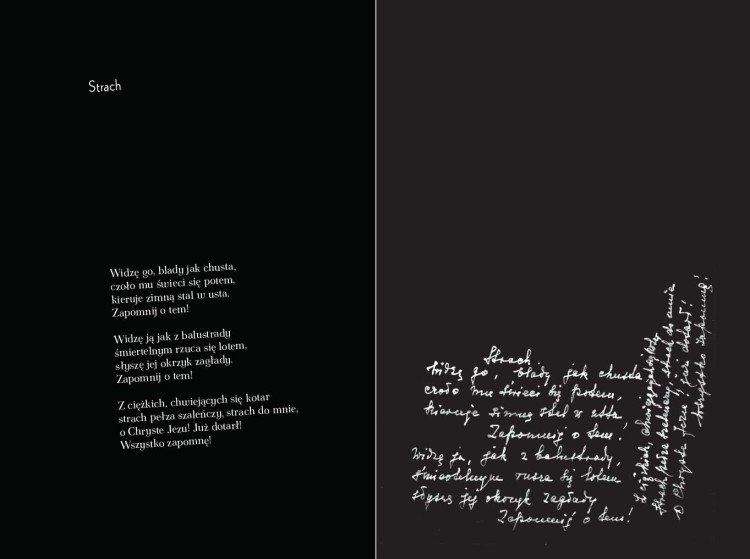 Strach
Widzę go, blady jak chusta,
czoło mu świeci się potem,
kieruje zimną stal w usta.
Zapomnij o tem!
Widzę ją jak z balustrady
śmiertelnym rzuca się lotem,
słyszę jej okrzyk zagłady.
Zapomnij o tem!
Z ciężkich, chwiejących się kotar
strach pełza szaleńczy, strach do mnie,
o Chryste Jezu! Już dotarł!
Wszystko zapomnę!
Strach
Widzę go, blady jak chusta
czoło mu świeci się potem,
kieruje zimną stal w usta
Zapomnij o tem!
Widzę ją, jak z balustrady,
śmiertelnym rzuca się lotem
słyszę jej okrzyk zagłady
Zapomnij o tem!
Z ciężkich, chwiejących się
strach pełza szaleńczy, strach do mnie
O Chryste Jezu! już dotarł!
Wszystko zapomnę!